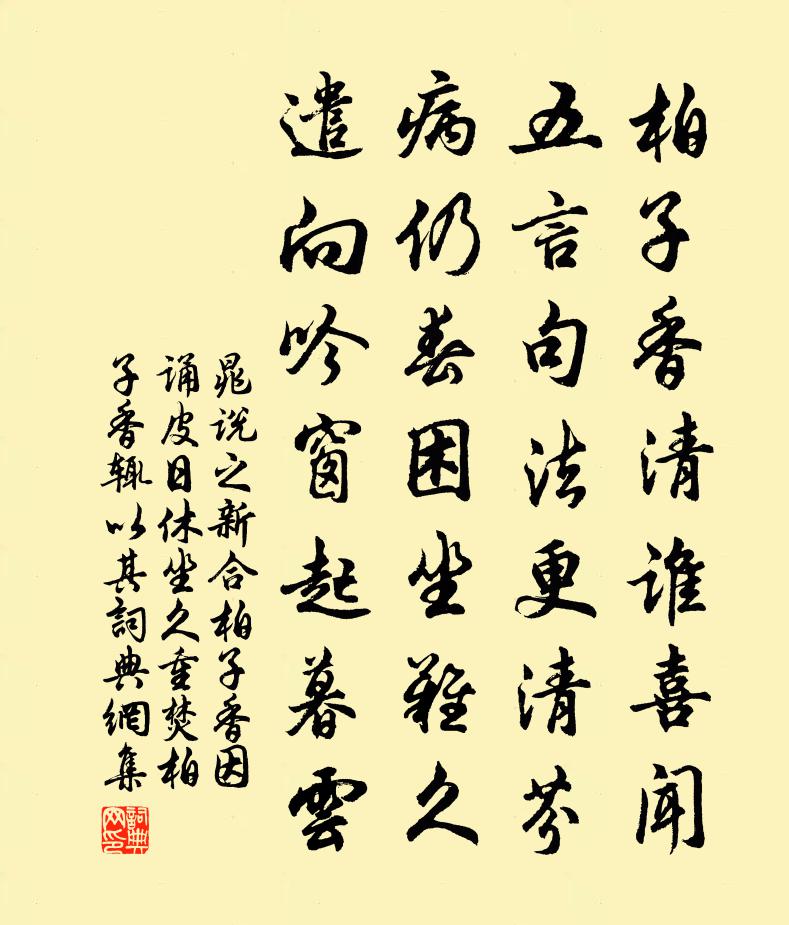 柏子香清谁喜闻
五言句法更清芬
病仍春困坐難久
遣向吟窗起暮雲
晁说之新合柏子香因
诵皮日休坐久重焚柏
子香辄以其詞典網集
詞典网印